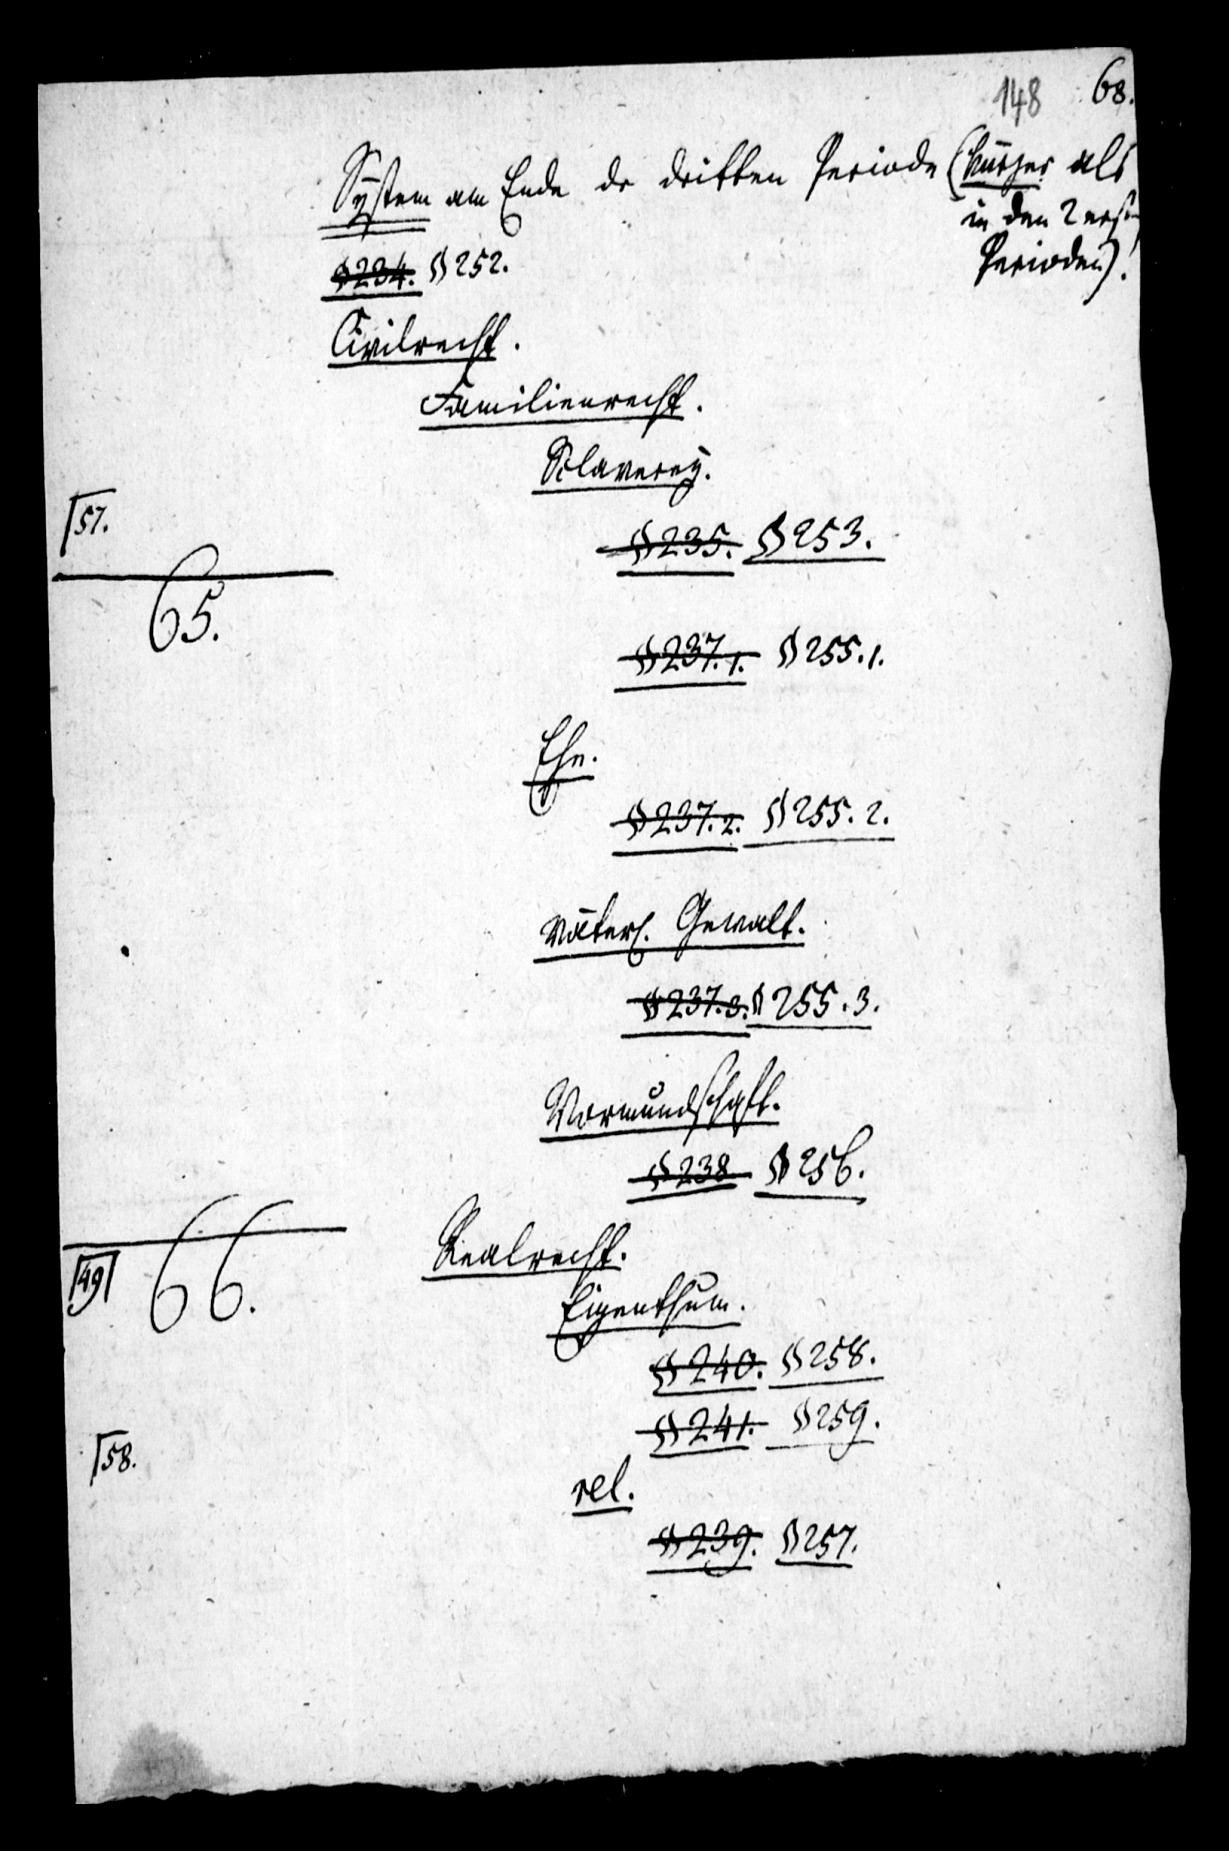 148 68.
System am Ende der dritten Periode (kürzer als
in den 2 ersten
Perioden)!
§ 234. § 252.
Civilrecht.
Familienrecht.
Sclaverey.
57.
§ 235. § 253.
65.
§ 237.1. § 255.1.
Ehe.
§ 237.2. § 255.2.
Väterl. Gewalt.
§ 237.3. § 255.3.
Vormundschaft.
§ 238 § 256.
Realrecht.
49 66.
Eigenthum.
§ 240. § 258.
§ 241. § 259.
58.
rel.
§ 239. § 257.